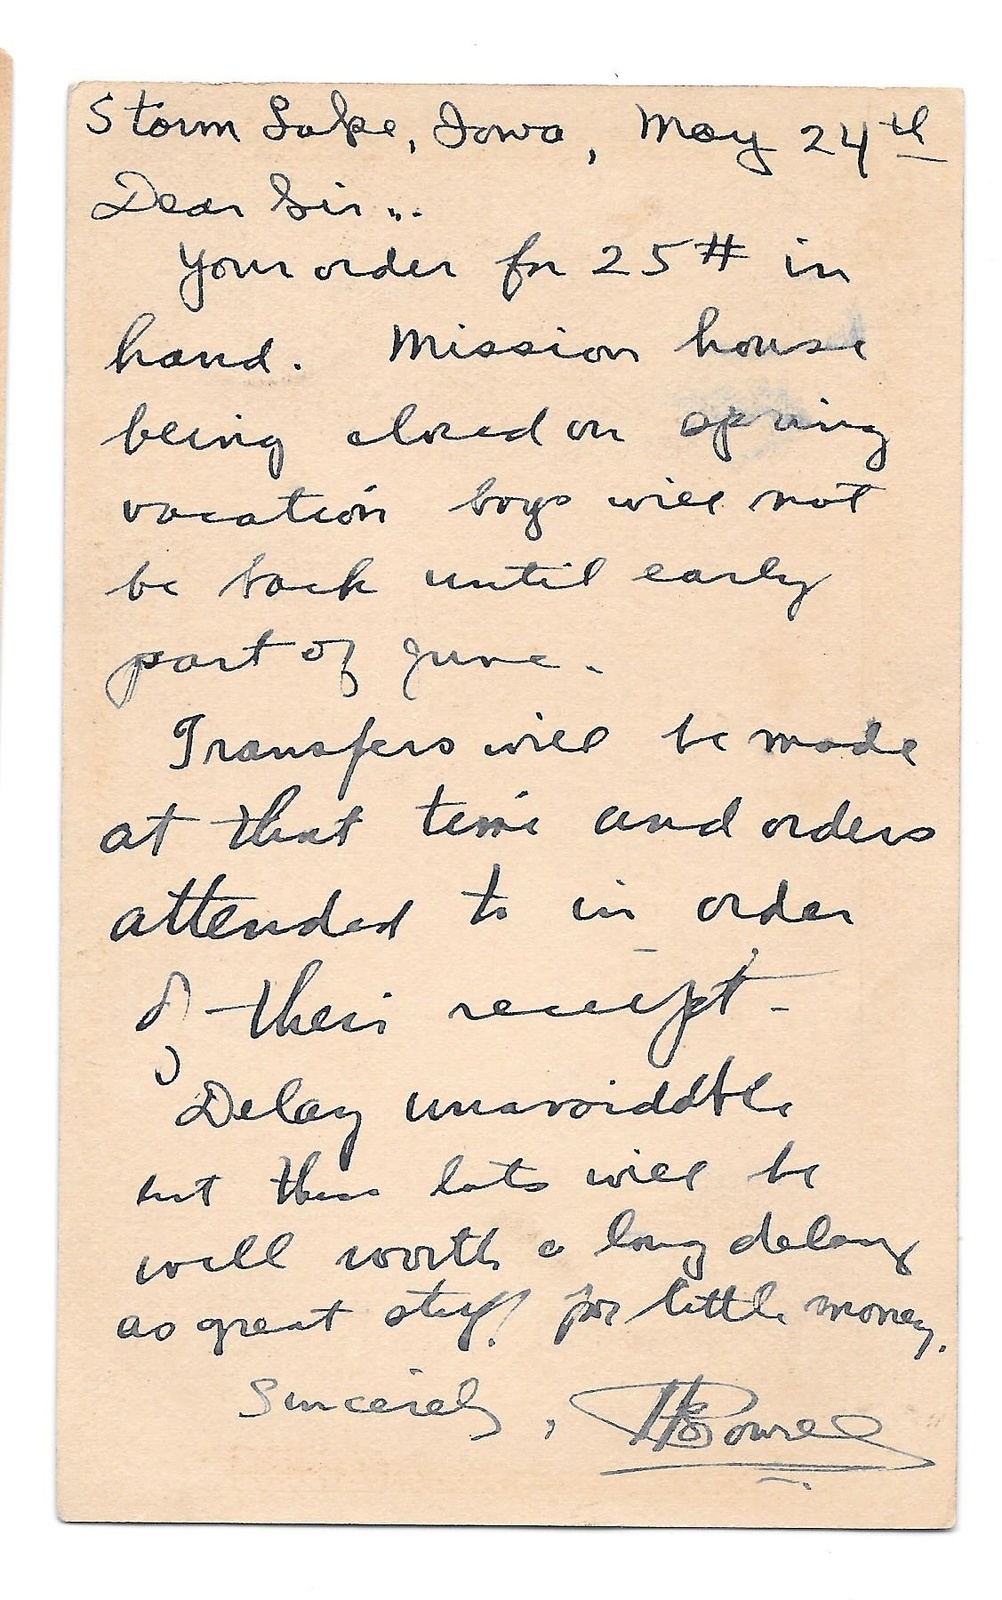 Storm Lake, Iowa, May 24th
Dear Sir...
Your order for 25# in
hand. Mission house
being closed on spring
vacation boys will not
be back until early
part of June.
Transfers will be made
at that time and orders
attended to in order
of their receipt -
Delay unavoidable
but these lots will be
well worth a long delay
as great stuff for little money.
Sincerely, Powell